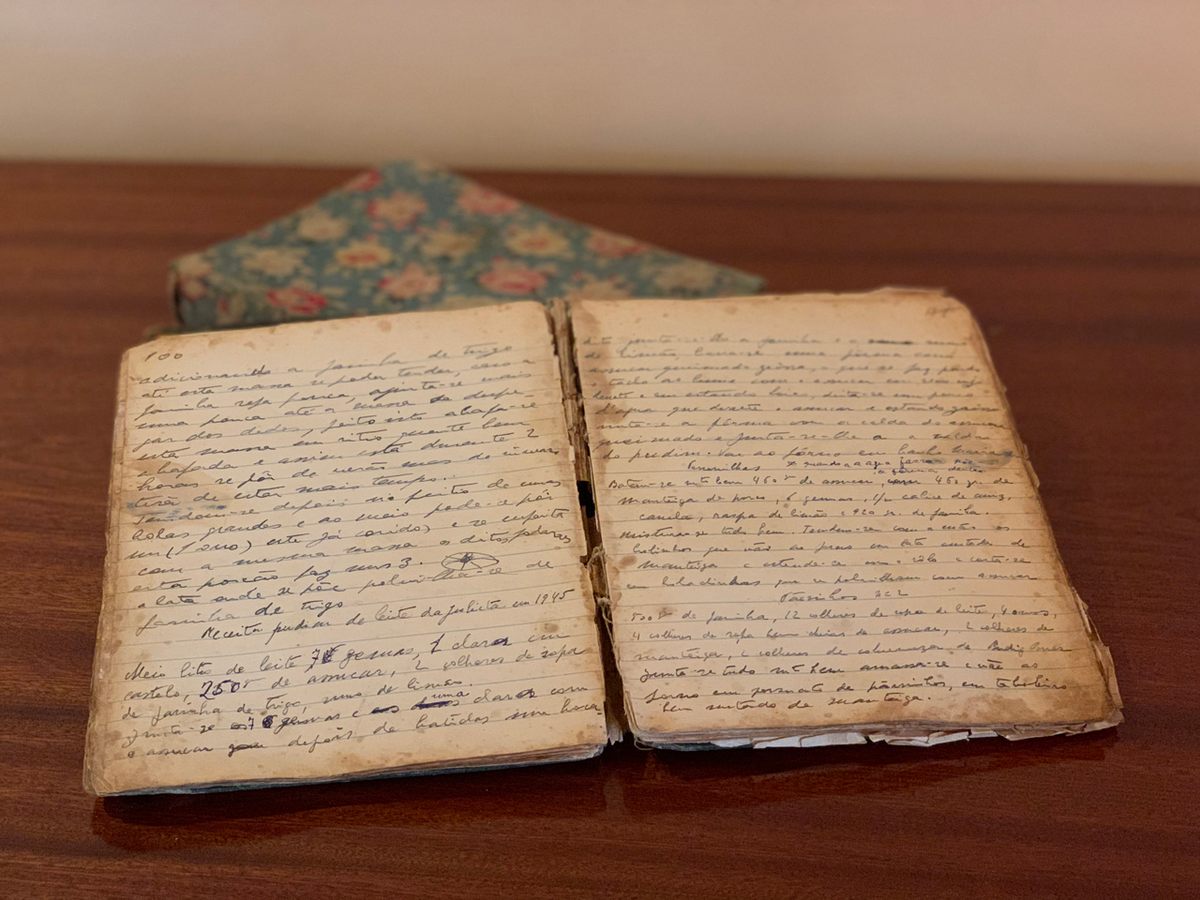 100
adicionando a farinha de trigo
até esta massa se poder tender, com a
farinha seja pouca, ajunta-se mais
uma pouca até a massa se despe-
gar dos dedos, feito isto abafa-se
esta massa em sitio quente bem
abafada e assim está durante 2
horas se fôr de verão mas de inver
terá de estar mais tempo.
Tendem-se depois no feito de umas
bolas grandes e ao meio pode-se pôr
um (1 ovo) este já cozido) e se enfeita
com a mesma massa o dito,
esta porção faz uns 3.
a lata onde se põe polvilha-se de
farinha de trigo
Receita pudim de leite da Julieta em 1945
Meio litro de leite 7 gemas, 1 clara em
castelo, 250 gr de assucar, 2 colheres de sopa
de farinha de trigo, sumo de limão.
Junta-se as 7 gemas e uma clara com
o assucar depois de batidas uma hora
junta-se-lhe a farinha e o
de limão, barra-se uma forma com
assucar
ao lume com o assucar
e em estando louro, deita-se um pouco
d'agua que derrete o assucar e estando
unta-se a fôrma com a calda do assucar
queimado e junta-se-lhe a
do pudim. Vae ao fôrno em banho maria
Batem-se muito bem 460 gr de assucar, 460 gr. de
manteiga de porco, 6 gemas, 1/2 calice de aniz,
canela, raspa de limão e 920 gr. de farinha.
Misturas-se tudo bem. Tendem-se com a mão os
bolinhos que vão ao forno em lata untada de
manteiga e estende-se com o rôlo e corta-se
em boladinhas que se polvilham com assucar
Pãesinhos
500 gr de farinha, 12 colheres de sopa de leite, 4 ovos,
4 colheres de sopa bem cheias de assucar, 2 colheres de
manteiga, 2 colheres de sobremeza de
Junta-se tudo mt bem amassa-se e vão ao
forno em formato de pãesinhos, em taboleiro
bem untado de manteiga.